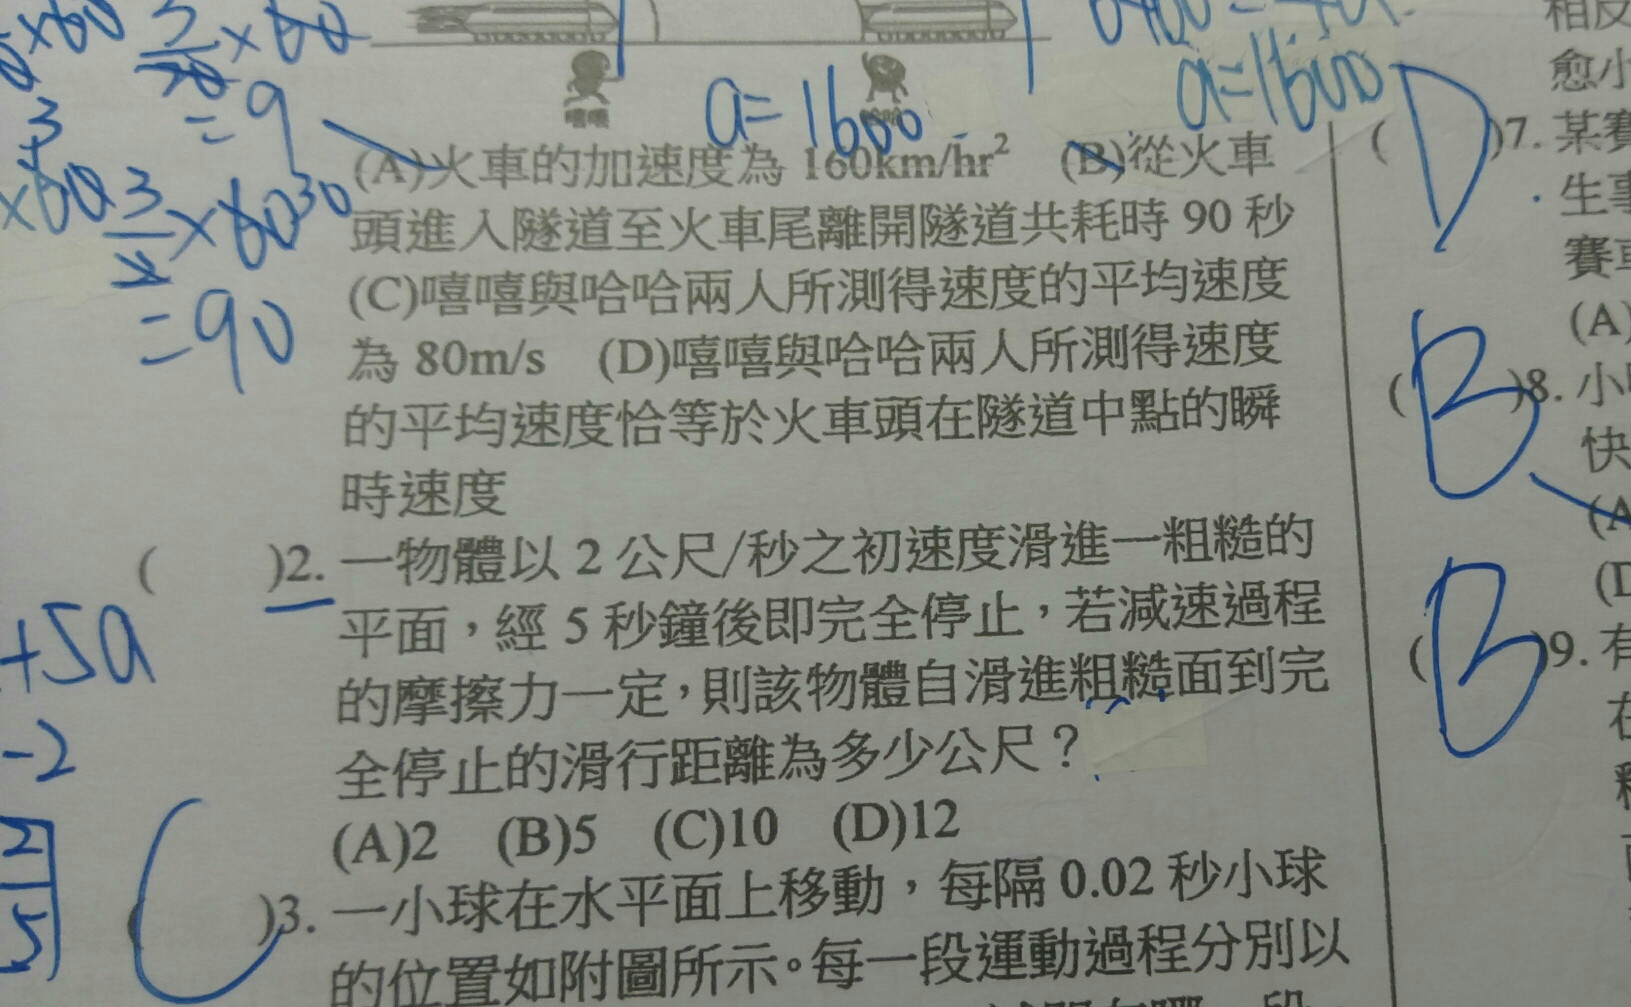 ×60 3/ ×60
= 9
3
×60 3/2 ×60 30
= 90
嘻嘻
a=1600
a=1600
(A)火車的加速度為 160km/hr² (B)從火車
頭進入隧道至火車尾離開隧道共耗時 90 秒
(C)嘻嘻與哈哈兩人所測得速度的平均速度
為 80m/s (D)嘻嘻與哈哈兩人所測得速度
的平均速度恰等於火車頭在隧道中點的瞬
時速度
( )2. 一物體以 2 公尺/秒之初速度滑進一粗糙的
平面，經 5 秒鐘後即完全停止，若減速過程
的摩擦力一定，則該物體自滑進粗糙面到完
全停止的滑行距離為多少公尺？
(A)2 (B)5 (C)10 (D)12
+5a
-2
2/5
(C)3. 一小球在水平面上移動，每隔 0.02 秒小球
的位置如附圖所示。每一段運動過程分別以
相反
愈小
(D)7. 某賽
生事
賽車
(A)
(B)8. 小明
快
(A
(D
(B)9. 有
在